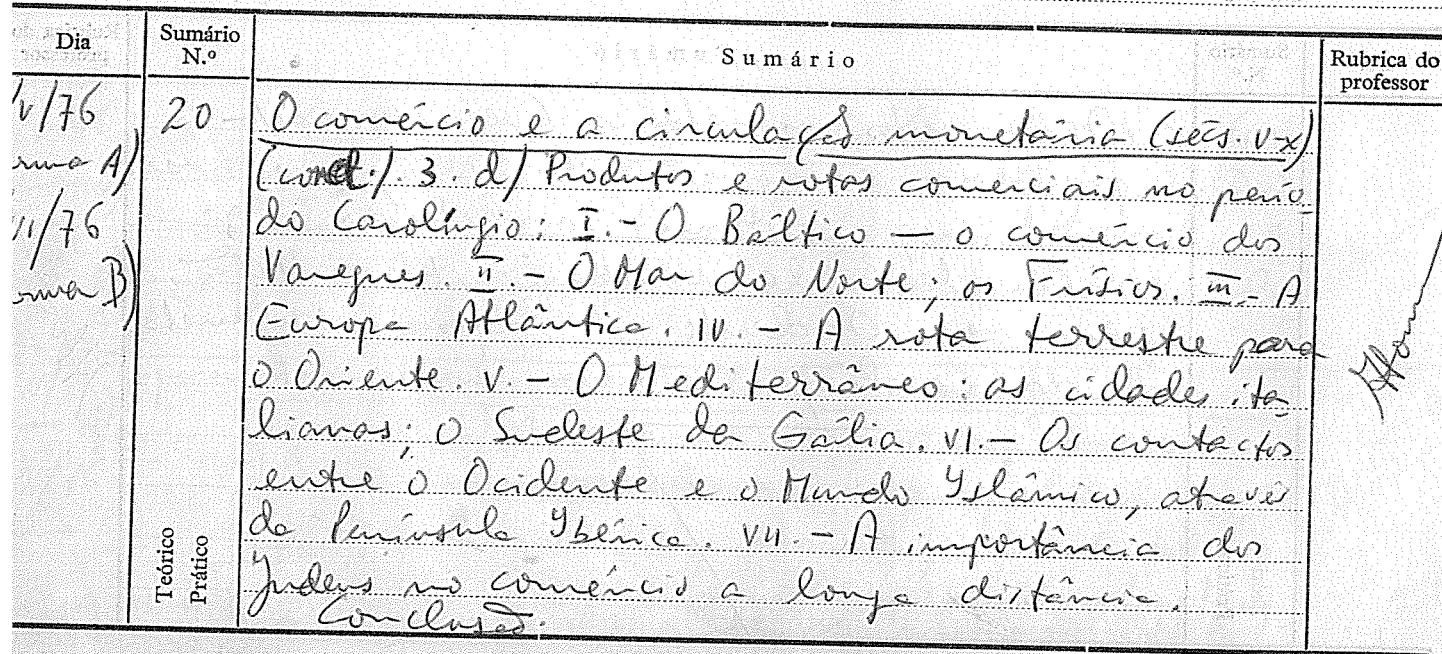 Dia
Sumário N.º
Sumário
Rubrica do professor
V/76
rma A)
II/76
rma B)
20
O comércio e a circulação monetária (sécs. V-X)
(cont.). 3. d) Produtos e rotas comerciais no perío-
do Carolíngio: I. - O Báltico — o comércio dos
Varegues. II. - O Mar do Norte; os Frísios. III. - A
Europa Atlântica. IV. - A rota terrestre para
o Oriente. V. - O Mediterrâneo: as cidades ita-
lianas; o Sudeste da Gália. VI. - Os contactos
entre o Ocidente e o Mundo Islâmico, através
da Península Ibérica. VII. - A importância dos
Judeus no comércio a longa distância.
Conclusão.
Teórico
Prático